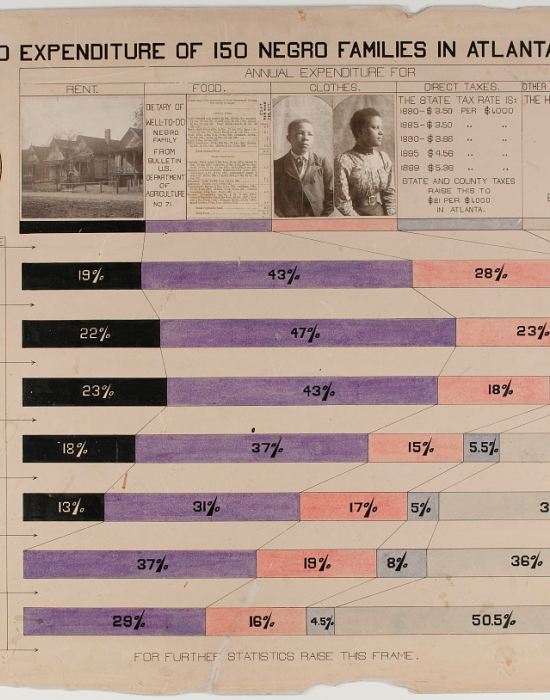 D EXPENDITURE OF 150 NEGRO FAMILIES IN ATLANTA
ANNUAL EXPENDITURE FOR
RENT.
FOOD.
CLOTHES.
DIRECT TAXES.
OTHER
DIETARY OF
WELL-TO-DO
NEGRO
FAMILY
FROM
BULLETIN
U.S.
DEPARTMENT
OF
AGRICULTURE
NO 71.
THE STATE TAX RATE IS:
1880-$ 3.50 PER $1,000
1885-$ 3.50 „ „
1890-$ 3.96 „ „
1895 $ 4.56 „ „
1899 $ 5.36 „ „
STATE AND COUNTY TAXES
RAISE THIS TO
$21 PER $1,000
IN ATLANTA.
THE H
19% 43% 28%
22% 47% 23%
23% 43% 18%
18% 37% 15% 5.5%
13% 31% 17% 5% 3
37% 19% 8% 36%
29% 16% 4.5% 50.5%
FOR FURTHER STATISTICS RAISE THIS FRAME.